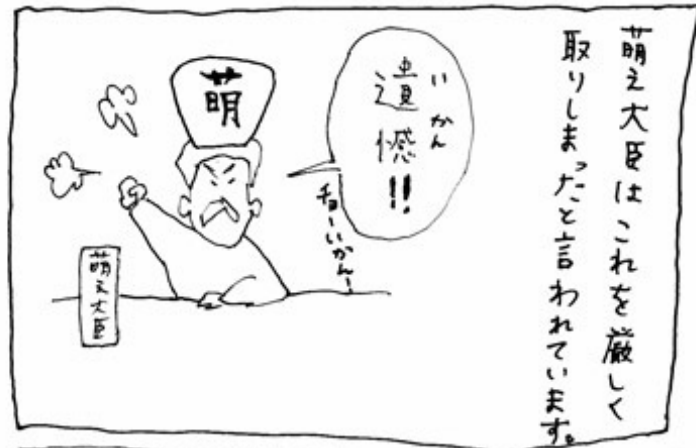 萌え大臣はこれを厳しく
取りしまったと言われています。
いかん
遺憾!!
チョーいかん!
萌
萌え大臣